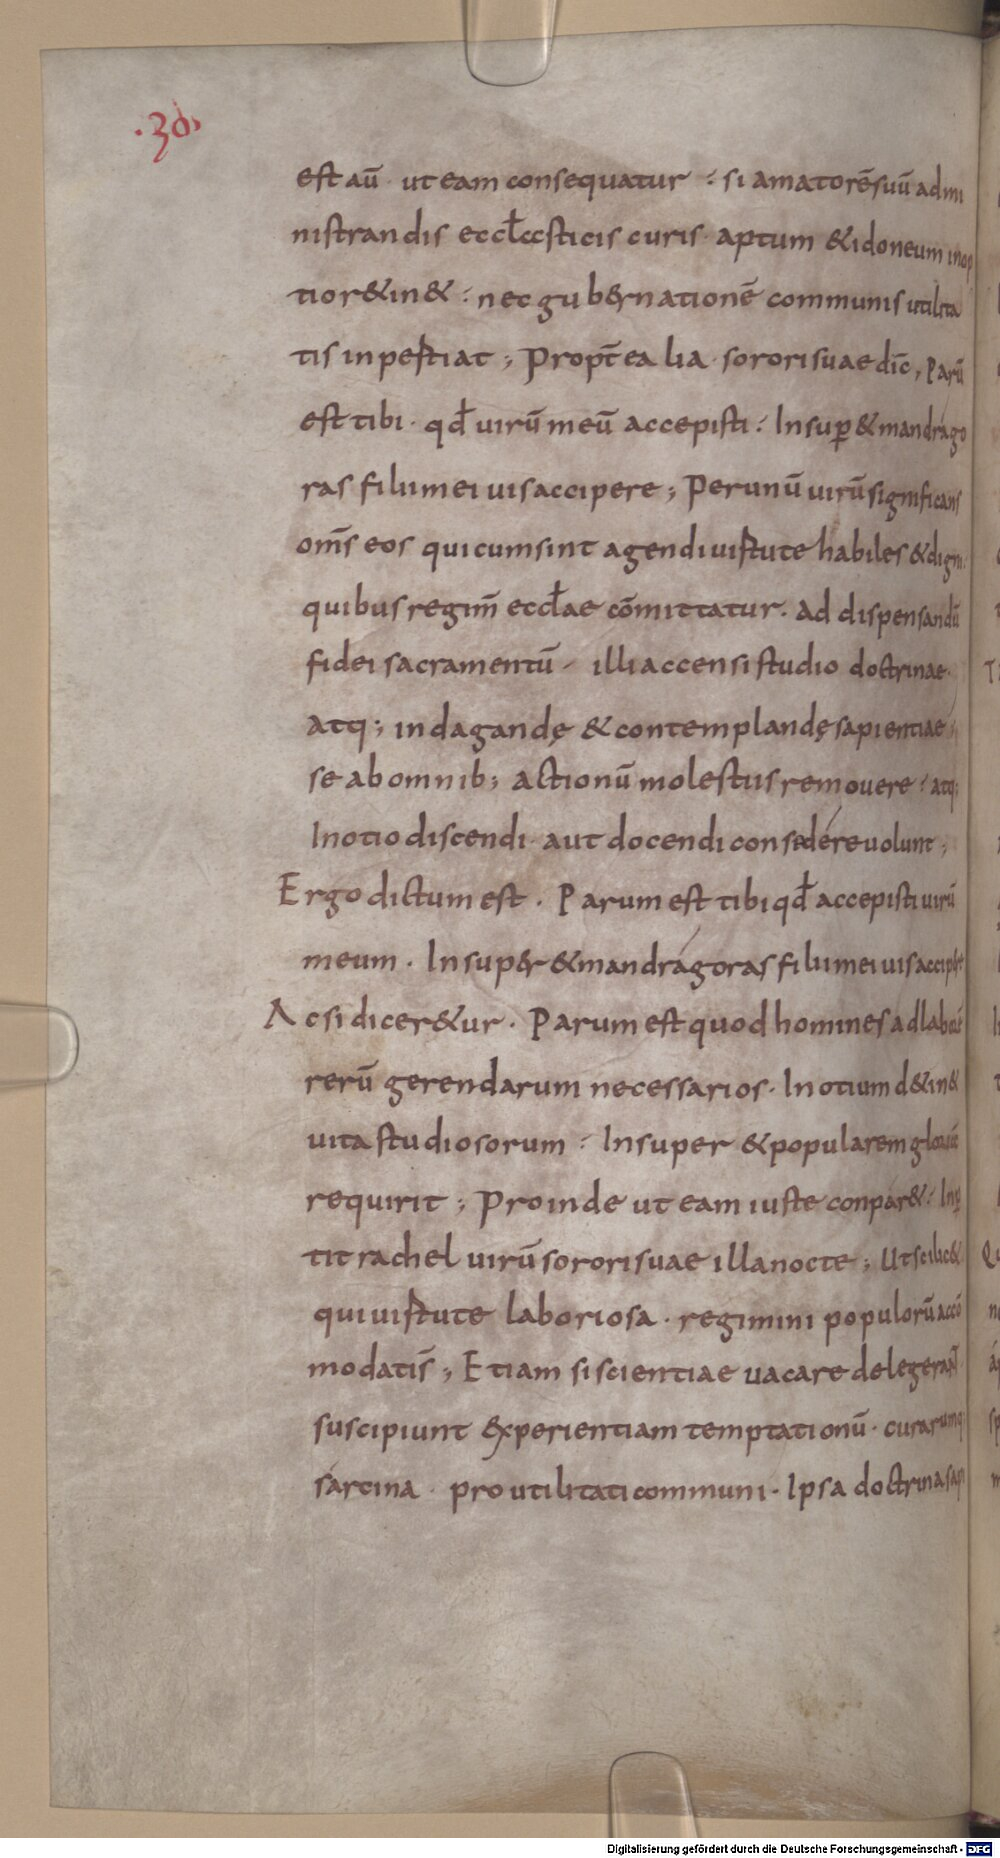 ·30·
est aū · ut eam consequatur : si amatorē suū admi
nistrandis eccl̄ccsticis curis · aptum & idoneum in op
tior& in& : nec gub&rnationē communis utilita
tis inpertiat ; Propt̄ea lia · sorori suae dic̄, Parū
est tibi · qd̄ uirū meū accepisti : Insup̱ & mandrago
ras filii mei uis accipere ; Per unū uirū significans
om̄s eos quicum sint agendi uirtute habiles & digni
quibus regim̄ eccl̄ae cōmittatur. Ad dispensandū
fidei sacramentū · illi accensi studio doctrinae ·
atq; indagandę & contemplandę sapientiae ;
se ab omnib; actionū molestiis remouere : atq;
In otio discendi · aut docendi consedére uolunt ;
Ergo dictum est . Parum est tibi qd̄ accepisti uirū
meum . Insup&r & mandrágoras filii mei uis accipere
Ac si dicer&ur . Parum est quod homines ad labore
rerū gerendarum necessarios . In otium d&in&
uita studiosorum : Insuper & popularem gloriā
requirit ; Proinde ut eam iuste conpar& : Inp̱
tit rachel uirū sorori suae illa nocte ; Ut scilic&
qui uirtute laboriosa . regimini populorū accō
modatis̄ ; Etiam si scientiae uacare delegerant
suscipiunt experientiam temptationū · curarumq;
sartina · pro utilitati communi · Ipsa doctrina sapi
Digitalisierung gefördert durch die Deutsche Forschungsgemeinschaft - DFG